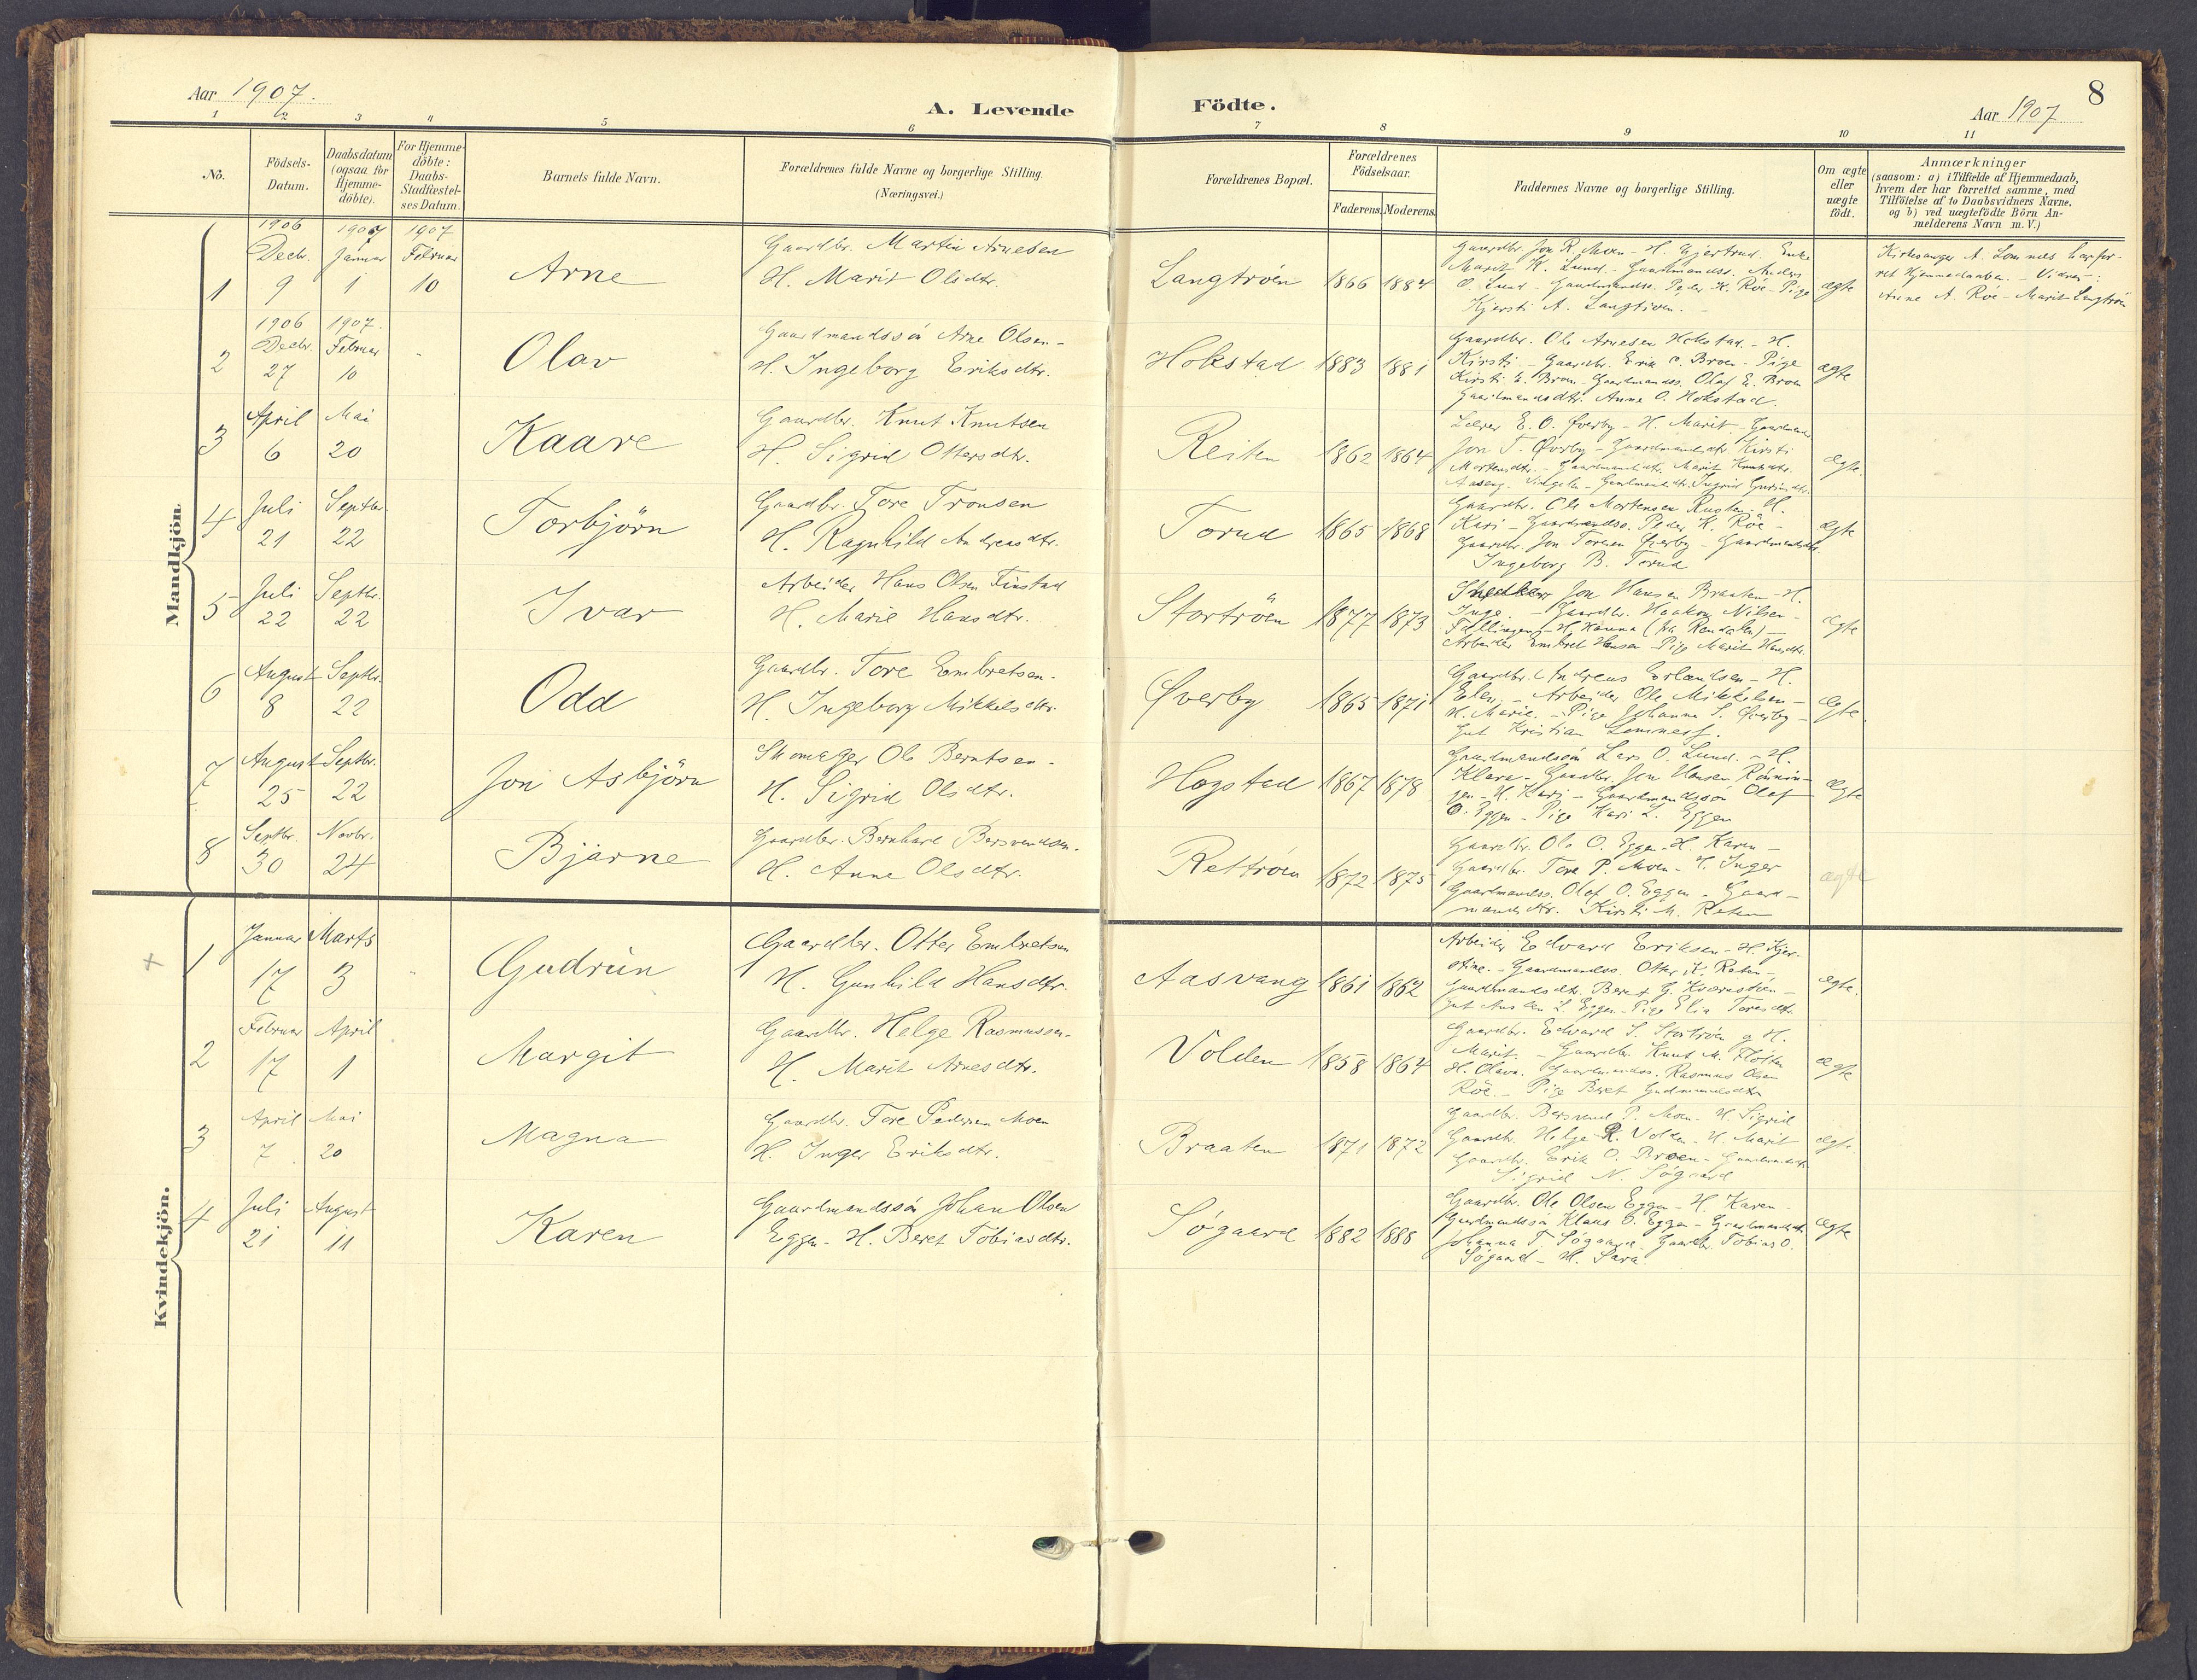 Aar 1907.
A. Levende Födte.
8
Aar 1907
1 2 3 4 5 6 7 8 9 10 11
No.
Födsels-Datum.
Daabsdatum (ogsaa for Hjemme-döbte).
For Hjemme-döbte: Daabs-Stadfæstel-ses Datum.
Barnets fulde Navn.
Forældrenes fulde Navne og borgerlige Stilling.
(Næringsvei.)
Forældrenes Bopæl.
Forældrenes Födselsaar.
Faderens. Moderens.
Faddernes Navne og borgerlige Stilling.
Om ægte eller uægte födt.
Anmærkninger
(saasom: a) i Tilfælde af Hjemmedaab,
hvem der har forrettet samme, med
Tilföielse af to Daabsvidners Navne.
og b) ved uægtefödte Börn An-
melderens Navn m. V.)
Mandkjön.
1
1906 Decbr. 9
1907 Januar 1
1907 Februar 10
Arne
Gaardbr. Martin Arnesen
H. Marit Olsdtr.
Langtröen 1866 1884
Gaardbr. Jon R. Moen - H. Gjertrud. Enke
Marit K. Lund. - Gaardmandss. Anders
O. Lund - Gaardmandss. Peder K. Röe - Pige
Kjersti A. Langtröen.
ægte
Kirkesanger A. Lomnes har for-
ret Hjemmedaaben. - Vidner:
Anne A. Röe - Marit Langtröen
2
1906 Decbr. 27
1907. Februar 10
Olav
Gaardmandssön Arne Olsen -
H. Ingeborg Eriksdtr.
Hokstad 1883 1881
Gaardbr. Ole Arnesen Hokstad. - H.
Kirsti - Gaardbr. Erik O. Broen - Pige
Kirsti E. Broen - Gaardmandss. Olaf E. Broen
Gaardmandsdtr. Anne O. Hokstad.
ægte
3
April 6
Mai 20
Kaare
Gaardbr. Knut Knutsen
H. Sigrid Ottersdtr.
Reiten 1862 1864
Lærer E. O. Øverby - H. Marit - Gaardmandss.
Jon T. Øverby - Gaardmandsdtr. Kirsti
Mortensdtr. - Gaardmandsdtr. Marit Knutsdtr.
Aaseng - Gaardmandsdtr. Ingrid
ægte.
4
Juli 21
Septbr. 22
Torbjörn
Gaardbr. Tore Tronsen
H. Ragnhild Andreasdtr.
Torud 1865 1868
Gaardbr. Ole Mortensen Rusten - H.
Kari - Gaardmandss. Peder K. Röe -
Gaardbr. Jon Toresen Øverby - Gaardmandsdtr.
Ingeborg B. Torud
ægte
5
Juli 22
Septbr. 22
Ivar
Arbeider Hans Olsen Finstad
H. Marie Hansdtr.
Stortröen 1877 1873
Snedker Jon Hansen Braaten - H.
Inge - Gaardbr. Haakon Nilsen
Fallingen - H. Hanna (fra Rendalen) -
Arbeider Embret Hansen - Pige Marit Hansdtr.
ægte
6
August 8
Septbr. 22
Odd
Gaardbr. Tore Embretsen -
H. Ingeborg Mikkelsdtr.
Øverby 1865 1871
Gaardbr. Andreas Erlandsen - H.
Elen - Arbeider Ole Mikkelsen -
H. Marie. - Pige Johanna S. Øverby -
Gut Kristian
ægte.
7
August 25
Septbr. 22
Jon Asbjörn
Skomager Ole Berntsen -
H. Sigrid Olsdtr.
Hogstad 1867 1878
Gaardmandssön Lars O. Lund. - H.
Klara - Gaardbr. Jon Hansen Rönnin-
gen - H. Kari - Gaardmandssön Olaf
O. Eggen - Pige Kari L. Eggen
ægte
8
Septbr. 30
Novbr. 24
Bjarne
Gaardbr. Bernhard Bersvendsen.
H. Anne Olsdtr.
Rettröen 1872 1875
Gaardbr. Ole O. Eggen - H. Karen -
Gaardbr. Tore P. Moen - H. Inger
Gaardmandss. Olaf O. Eggen - Gaard-
mandsdtr. Kirsti M. Reten
ægte
Kvindekjön.
1
Januar 17
Marts 3
Gudrun
Gaardbr. Otter Embretsen
H. Gunhild Hansdtr.
Aasvang 1861 1862
Arbeider Edvard Eriksen - H. Kjer-
stine. - Gaardmandss. Otter K. Reten -
Gaardmandsdtr. Beret G. Kvernstuen -
Gut L. Eggen - Pige Elia Toresdtr.
ægte.
2
Februar 17
April 1
Margit
Gaardbr. Helge Rasmussen -
H. Marit Arnesdtr.
Volden 1858 1864
Gaardbr. Edvard S. Stortröen og H.
Marit. - Gaardbr. Knut M. Floten
H. Olava. Gaardmandss. Rasmus Olsen
Röe - Pige Beret Gudmundsdtr
ægte
3
April 7
Mai 20
Magna
Gaardbr. Tore Pedersen Moen
H. Inger Eriksdtr.
Braaten 1871 1872
Gaardbr. Bersvend P. Moen - H. Sigrid
Gaardbr. Helge R. Volden - H. Marit
Gaardbr. Erik O. Broen - Gaardmandsdtr.
Sigrid N. Søgaard
ægte.
4
Juli 21
August 11
Karen
Gaardmandssön Johan Olsen
Eggen - H. Beret Tobiasdtr.
Søgaard 1882 1888
Gaardbr. Ole Olsen Eggen - H. Karen -
Gaardmandssön Klaus O. Eggen - Gaardmandsdtr.
Johanna T. Søgaard. Gaardbr. Tobias O.
Søgaard - H. Sara.
ægte